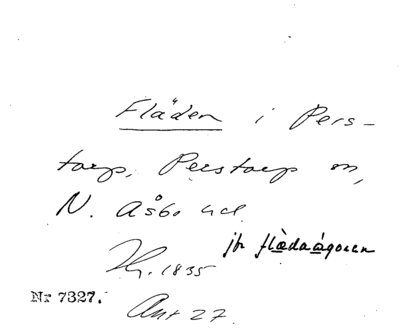 Fläden i Pers-
torp, Perstorp sn,
N. Åsbo hd.
jfr flædaágoren
Hg. 1835
Nr 7327.
Ant 27